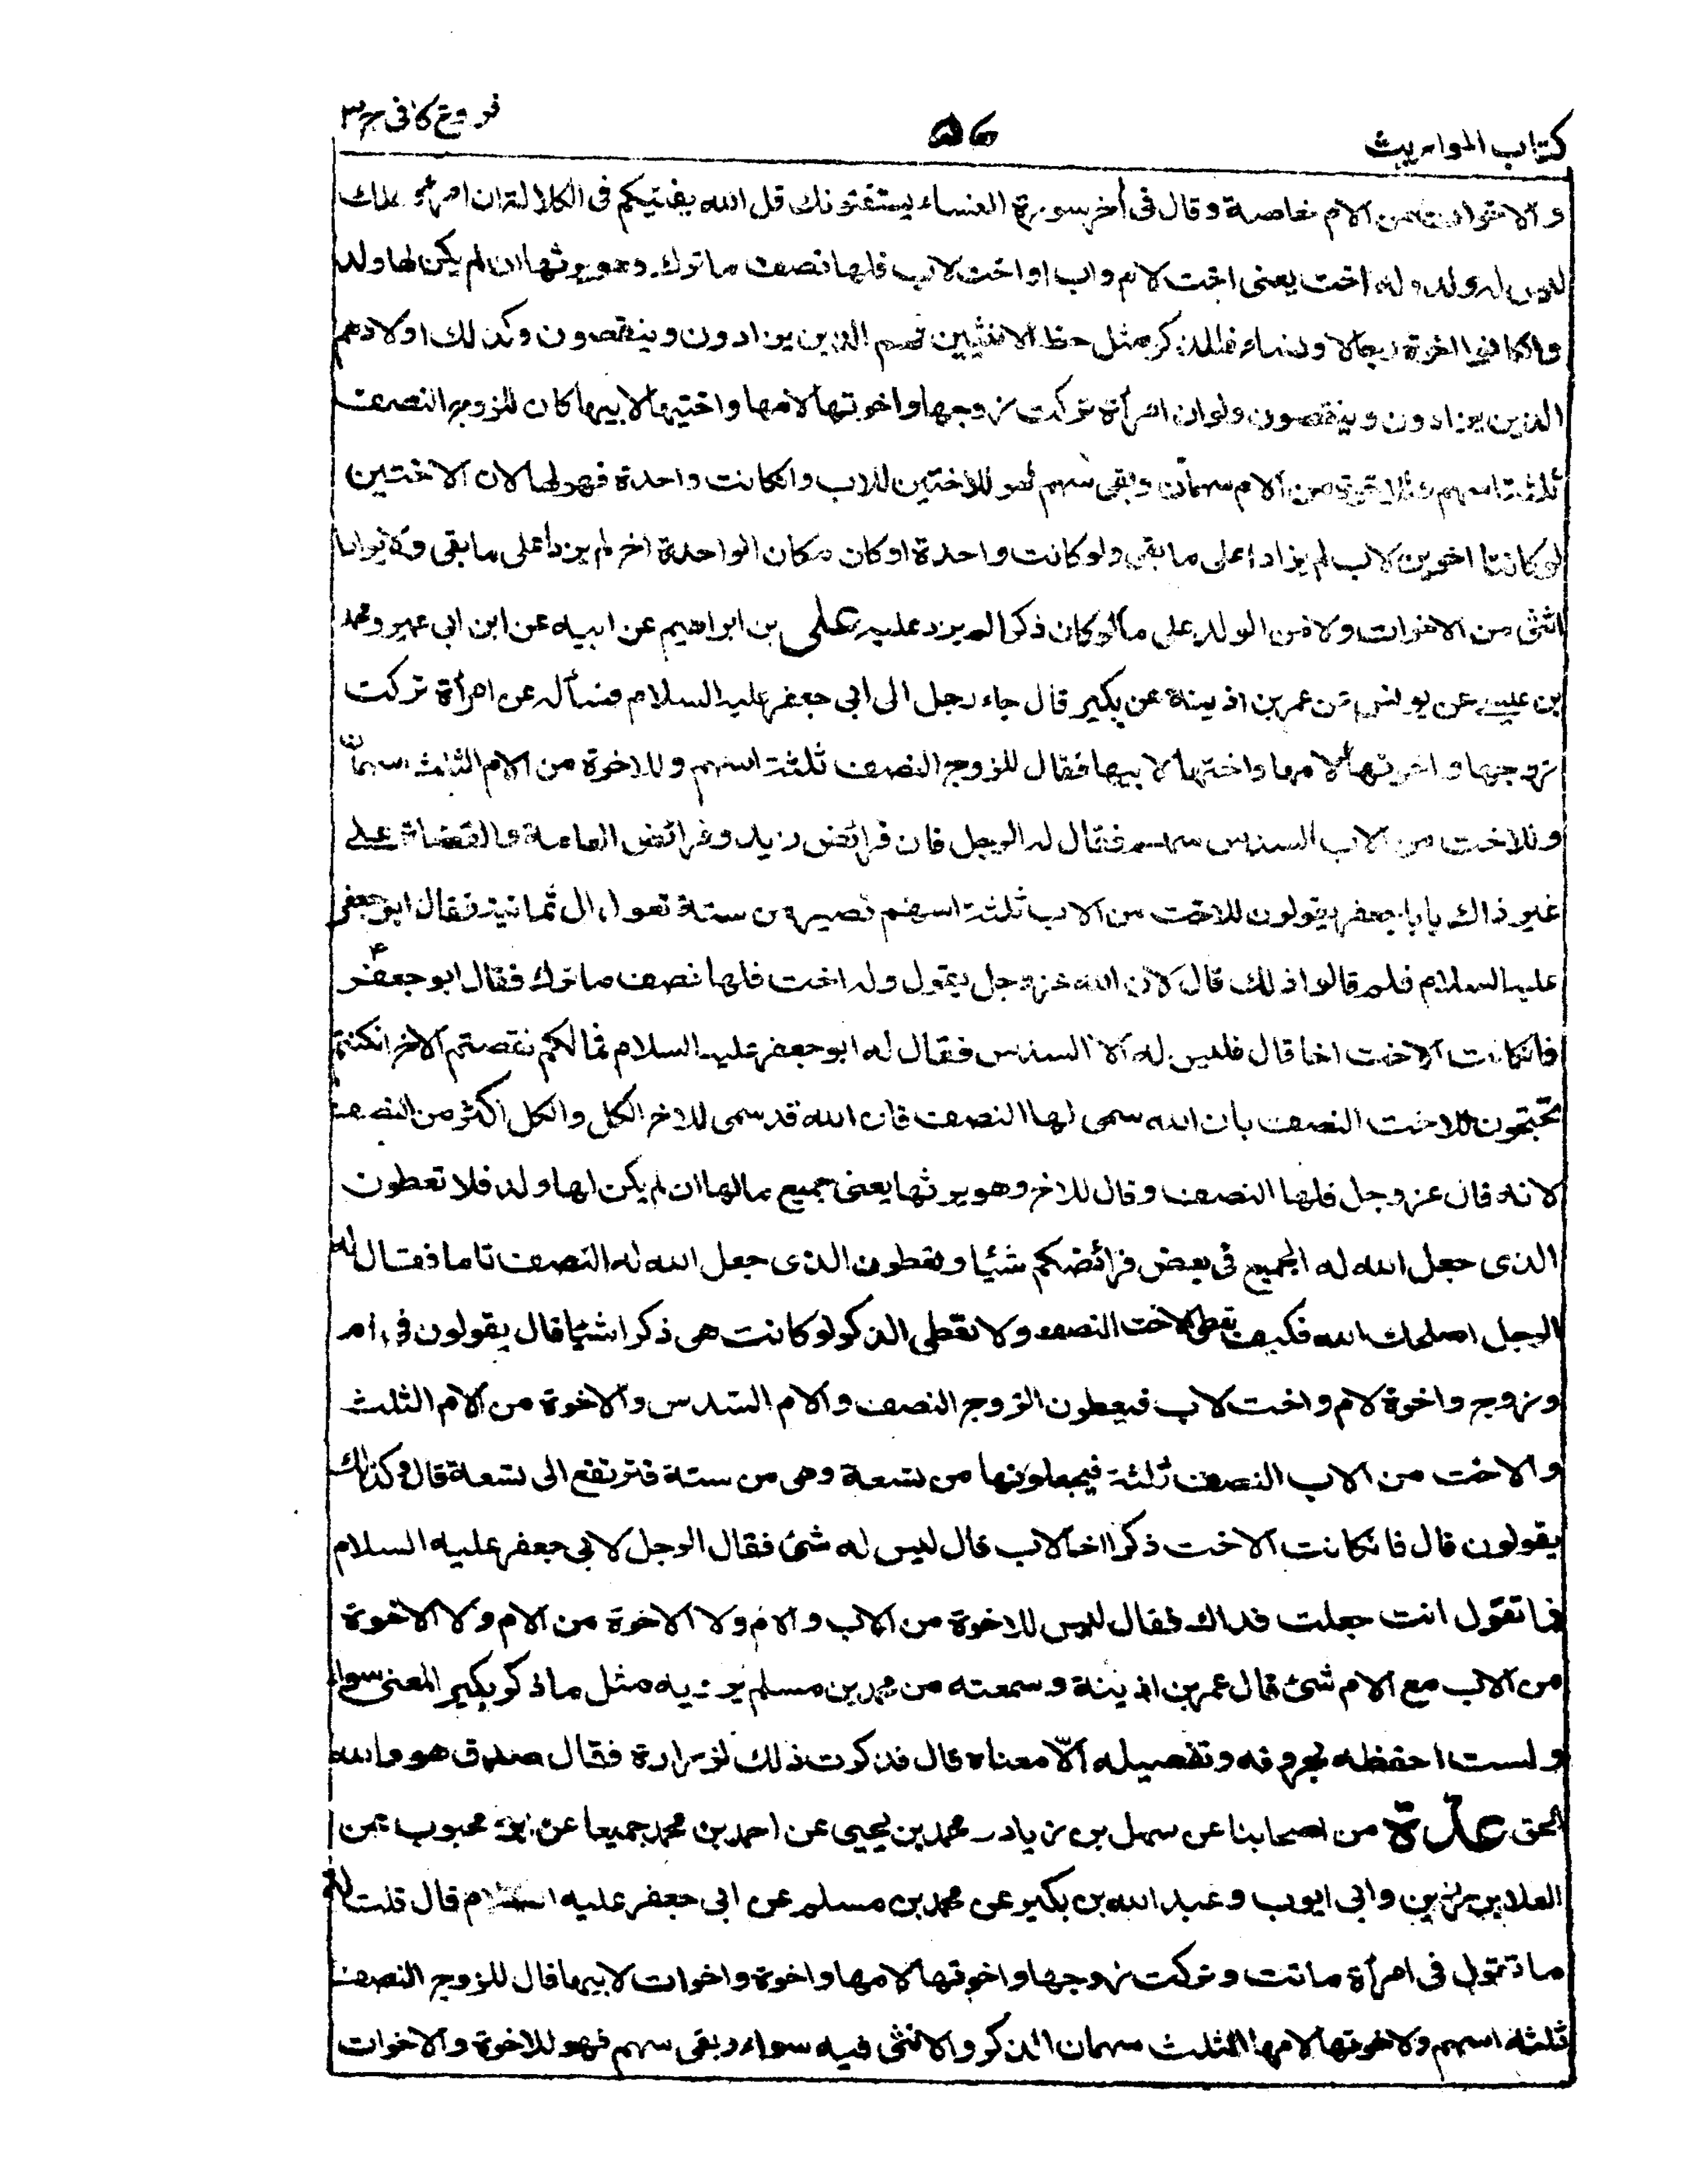 كتاب المواريث
٥٦
فروع كافى ج٣
والاخوات من الام خاصة وقال فى آخر سورة النساء يستفتونك قل الله يفتيكم فى الكلالة ان امرؤ هلك
ليس له ولد وله اخت يعنى اخت لام واب او اخت لاب فلها نصف ما ترك وهو يرثها ان لم يكن لها ولد
وان كانوا اخوة رجالا ونساء فللذكر مثل حظ الانثيين فهم الذين يزادون وينقصون وكذلك اولادهم
الذين يزادون وينقصون ولو ان امرأة تركت زوجها واخوتها لامها واختيها لابيها كان للزوج النصف
ثلثة اسهم وللاخوة من الام سهمان وبقى سهم فهو للاختين للاب وانكانت واحدة فهو لها لان الاختين
لو كانتا اخوين لاب لم يزادا على ما بقى ولو كانت واحدة او كان مكان الواحدة اخ لم يزد على ما بقى ولا يزاد
انثى من الاخوات ولا من الولد على ما لو كان ذكرا لم يزد عليه على بن ابراهيم عن ابيه عن ابن ابى عمير ومحمد
بن عيسى عن يونس عن عمر بن اذينة عن بكير قال جاء رجل الى ابى جعفر عليه السلام فسأله عن امرأة تركت
زوجها واخوتها لامها واختها لابيها فقال للزوج النصف ثلثة اسهم وللاخوة من الام الثلث سهمان
وللاخت من الاب السدس سهم فقال له الرجل فان فرائض زيد وفرائض العامة والقضاة على
غير ذاك يابا جعفر يقولون للاخت من الاب ثلثة اسهم تصير من ستة تعول الى ثمانية فقال ابو جعفر
عليه السلام فلم قالوا ذلك قال لان الله عز وجل يقول وله اخت فلها نصف ما ترك فقال ابو جعفر ع
فانكانت الاخت اخا قال فليس له الا السدس فقال له ابو جعفر عليه السلام فما لكم نقصتم الاخ انكنتم
تحتجون للاخت النصف بان الله سمى لها النصف فان الله قد سمى للاخ الكل والكل اكثر من النصف
لانه قال عز وجل فلها النصف وقال للاخ وهو يرثها يعنى جميع مالها ان لم يكن لها ولد فلا تعطون
الذى جعل الله له الجميع فى بعض فرائضكم شيئا وتعطون الذى جعل الله له النصف تاما فقال له
الرجل اصلحك الله فكيف نعطى الاخت النصف ولا نعطى الذكر لو كانت هى ذكرا شيئا قال يقولون فى ام
وزوج واخوة لام واخت لاب فيعطون الزوج النصف والام السدس والاخوة من الام الثلث
والاخت من الاب النصف ثلثة فيجعلونها من تسعة وهى من ستة فترتفع الى تسعة قال وكذلك
يقولون قال فانكانت الاخت ذكرا اخا لاب قال ليس له شئ فقال الرجل لابى جعفر عليه السلام
فما تقول انت جعلت فداك فقال ليس للاخوة من الاب والام ولا الاخوة من الام ولا الاخوة
من الاب مع الام شئ قال عمر بن اذينة وسمعته من محمد بن مسلم يرويه مثل ما ذكر بكير المعنى سواء
ولست احفظه بحروفه وتفصيله الّا معناه قال فذكرت ذلك لزرارة فقال صدق هو والله
الحق عدّة من اصحابنا عن سهل بن زياد ومحمد بن يحيى عن احمد بن محمد جميعا عن ابن محبوب عن
العلا بن رزين وابى ايوب وعبد الله بن بكير عن محمد بن مسلم عن ابى جعفر عليه السلام قال قلت له
ما تقول فى امرأة ماتت وتركت زوجها واخوتها لامها واخوة واخوات لابيها قال للزوج النصف
ثلثة اسهم ولاخوتها لامها الثلث سهمان الذكر والانثى فيه سواء وبقى سهم فهو للاخوة والاخوات